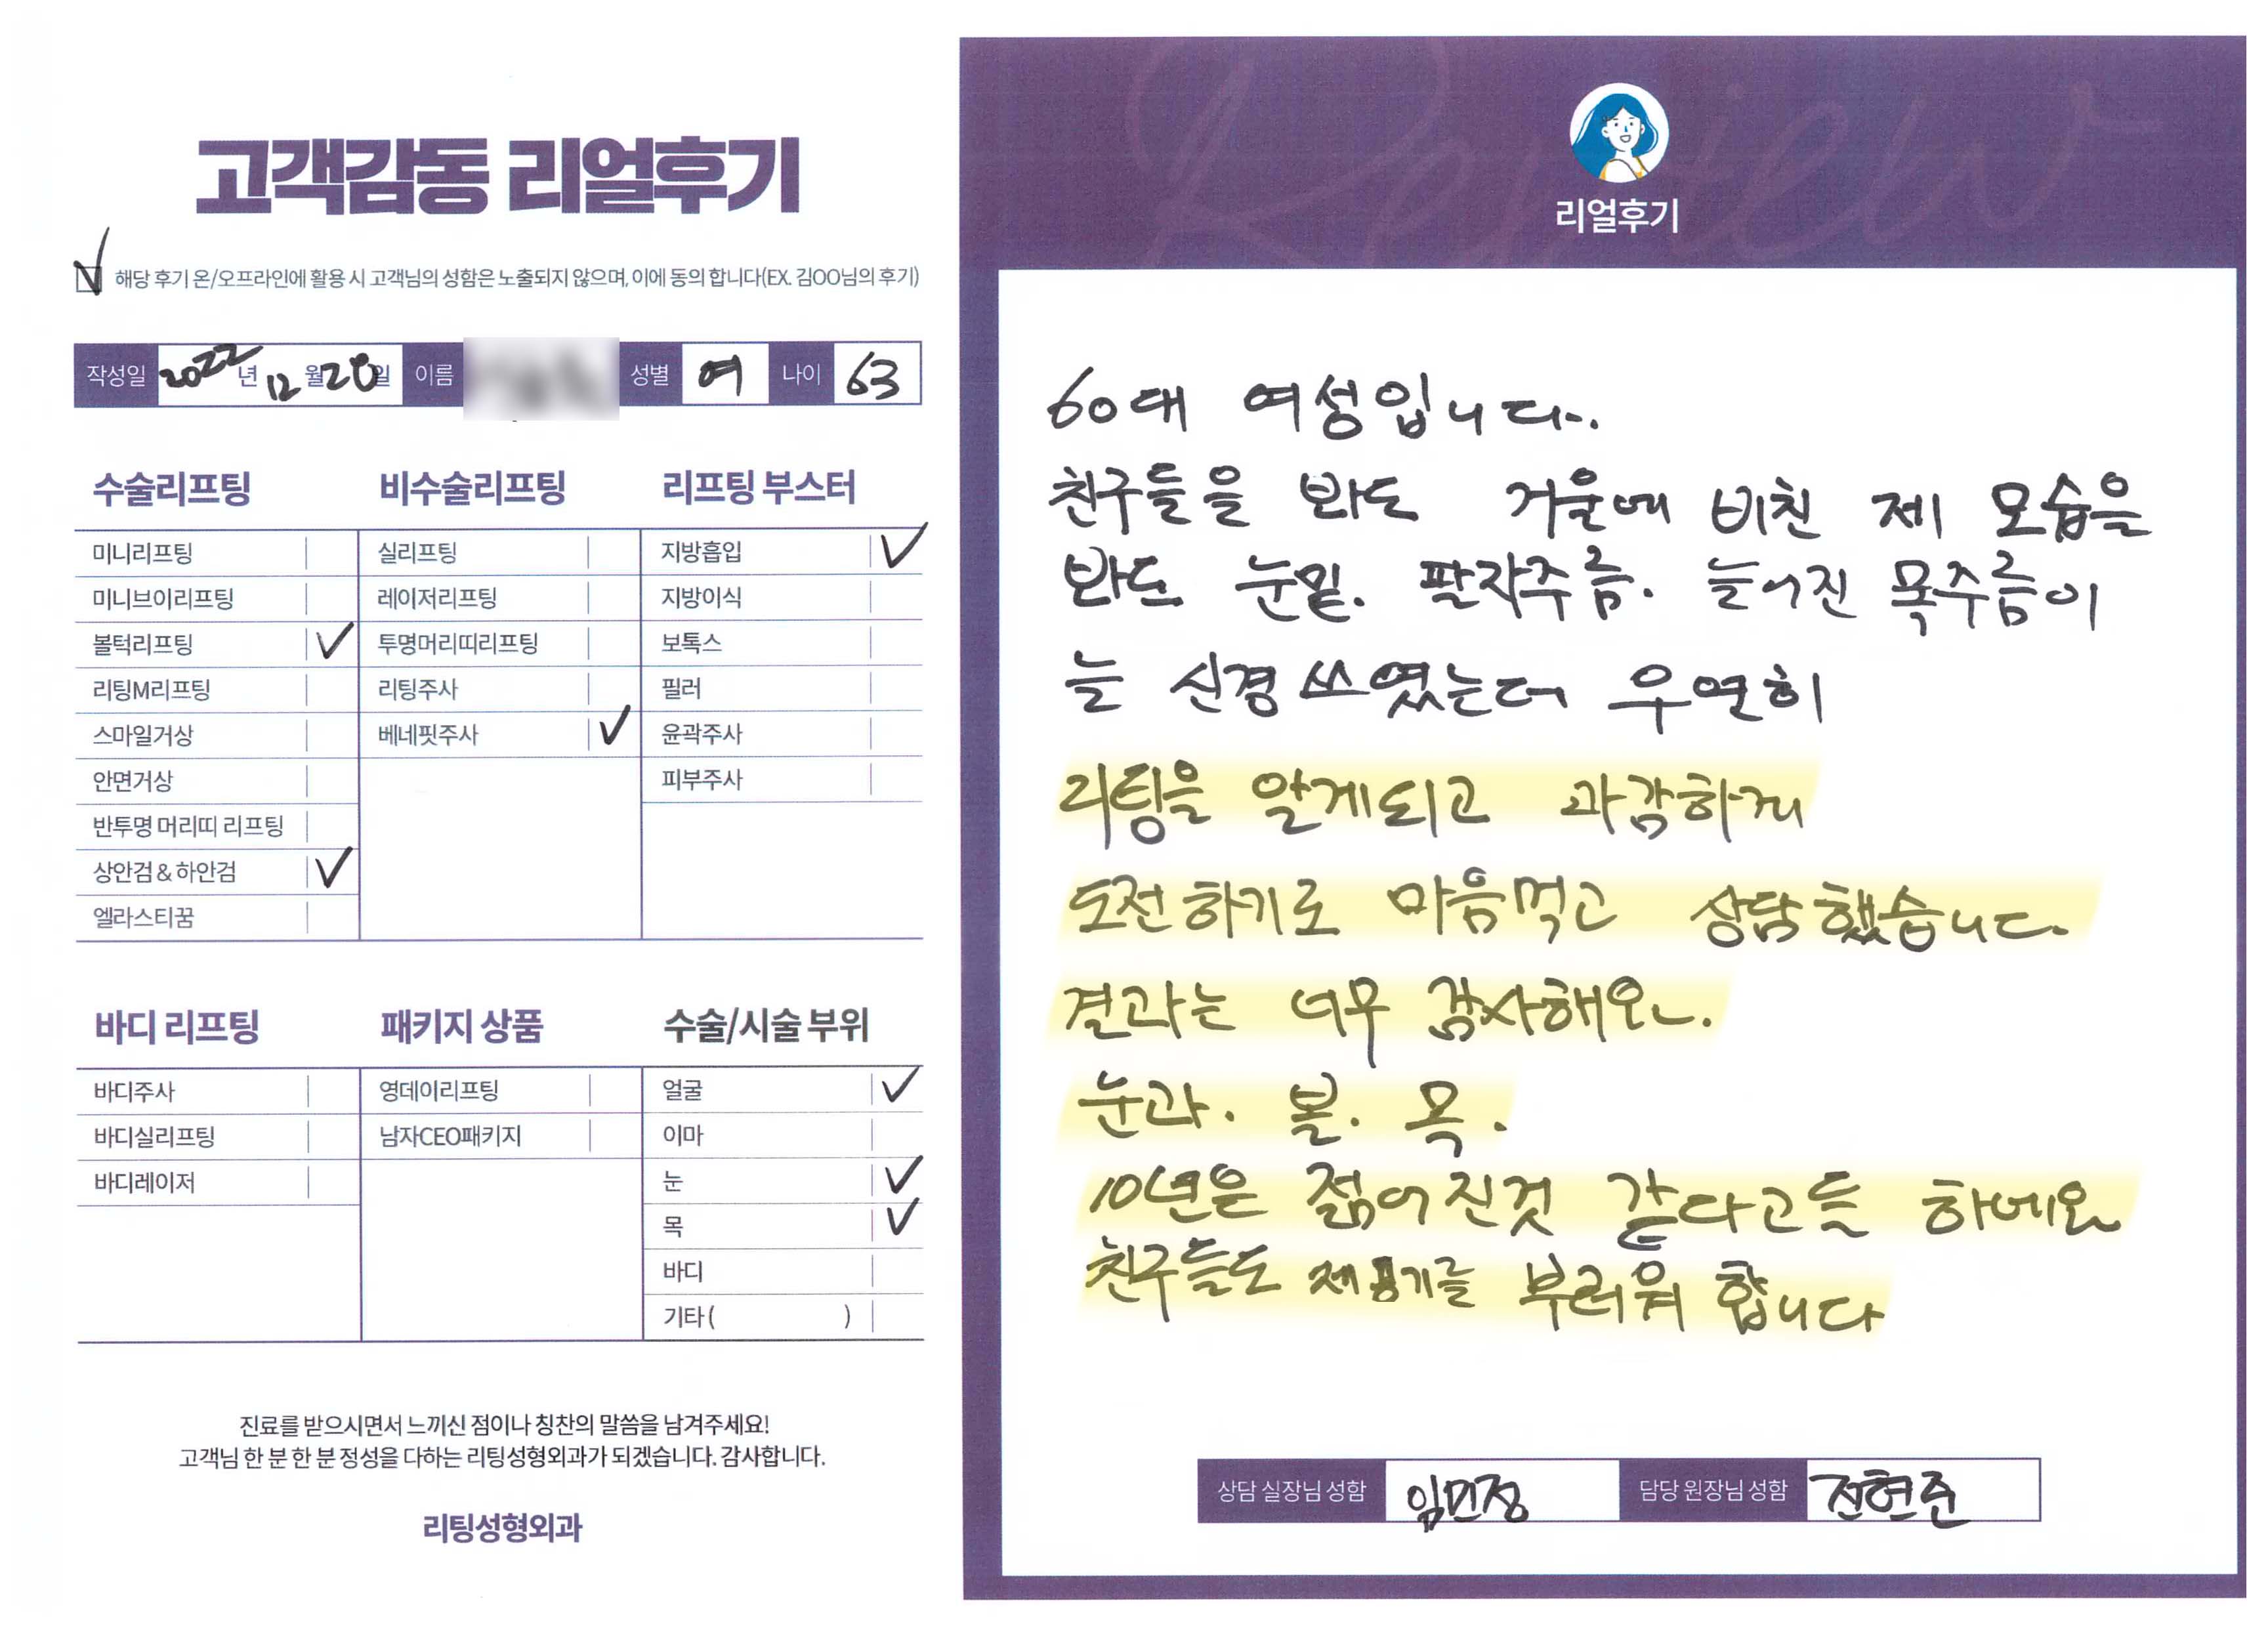 고객감동 리얼후기
해당 후기 온/오프라인에 활용 시 고객님의 성함은 노출되지 않으며, 이에 동의 합니다(EX. 김OO님의 후기)
작성일 2022년 12월 20일 이름 성별 여 나이 63
수술리프팅
미니리프팅
미니브이리프팅
볼턱리프팅 ✓
리팅M리프팅
스마일거상
안면거상
반투명 머리띠 리프팅
상안검 & 하안검 ✓
엘라스티꿈
비수술리프팅
실리프팅
레이저리프팅
투명머리띠리프팅
리팅주사
베네핏주사 ✓
리프팅 부스터
지방흡입 ✓
지방이식
보톡스
필러
윤곽주사
피부주사
바디 리프팅
바디주사
바디실리프팅
바디레이저
패키지 상품
영데이리프팅
남자CEO패키지
수술/시술 부위
얼굴 ✓
이마
눈 ✓
목 ✓
바디
기타 ( )
진료를 받으시면서 느끼신 점이나 칭찬의 말씀을 남겨주세요!
고객님 한 분 한 분 정성을 다하는 리팅성형외과가 되겠습니다. 감사합니다.
리팅성형외과
Review
리얼후기
60대 여성입니다.
친구들을 봐도 거울에 비친 제 모습을
봐도 눈밑. 팔자주름. 늘어진 목주름이
늘 신경 쓰였는데 우연히
리팅을 알게되고 과감하게
도전하기로 마음먹고 상담했습니다.
결과는 너무 감사해요.
눈과. 볼. 목.
10년은 젊어진것 같다고들 하네요
친구들도 제 용기를 부러워 합니다
상담 실장님 성함 임민정 담당 원장님 성함 전현준